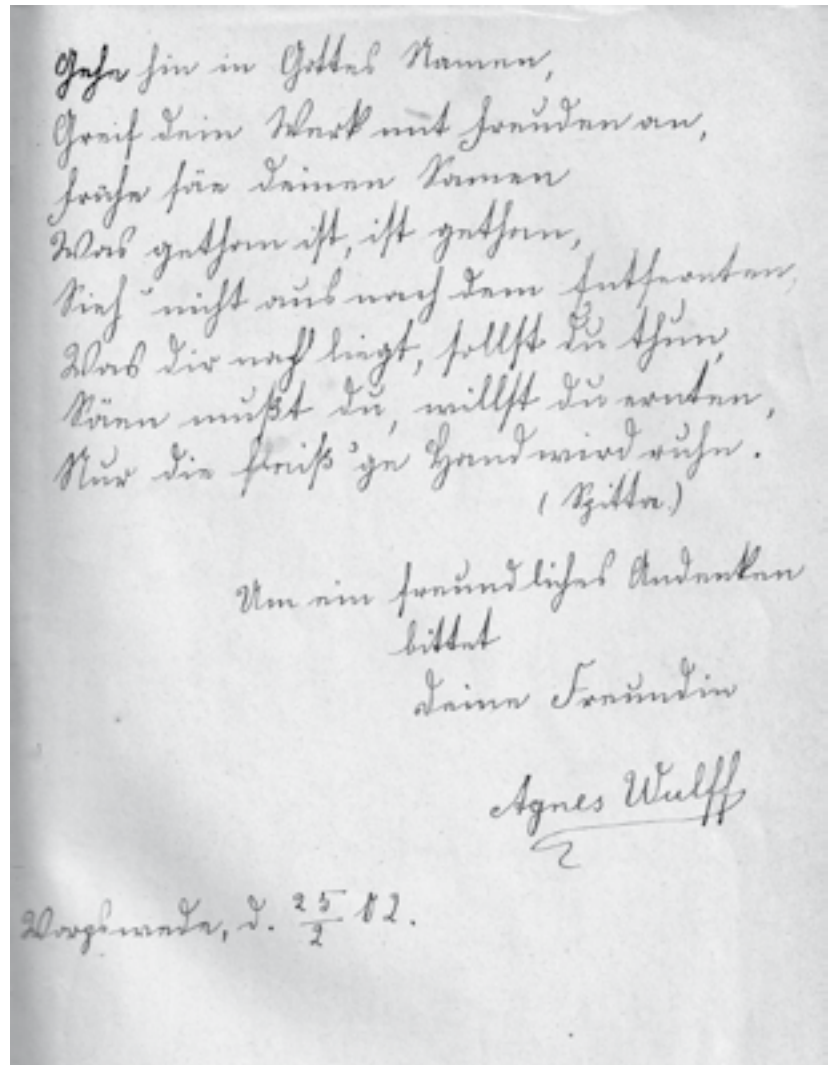 Gehe hin in Gottes Namen,
Greif dein Werk mit Freuden an,
Frühe säe deinen Samen
Was gethan ist, ist gethan,
Sieh' nicht aus nach dem Entfernten,
Was dir nah liegt, sollst du thun,
Säen mußt du, willst du ernten,
Nur die fleiß'ge Hand wird ruhn.
(Spitta.)
Um ein freundliches Andenken
bittet
deine Freundin
Agnes Wulff
Worpswede, d. 25/2 02.